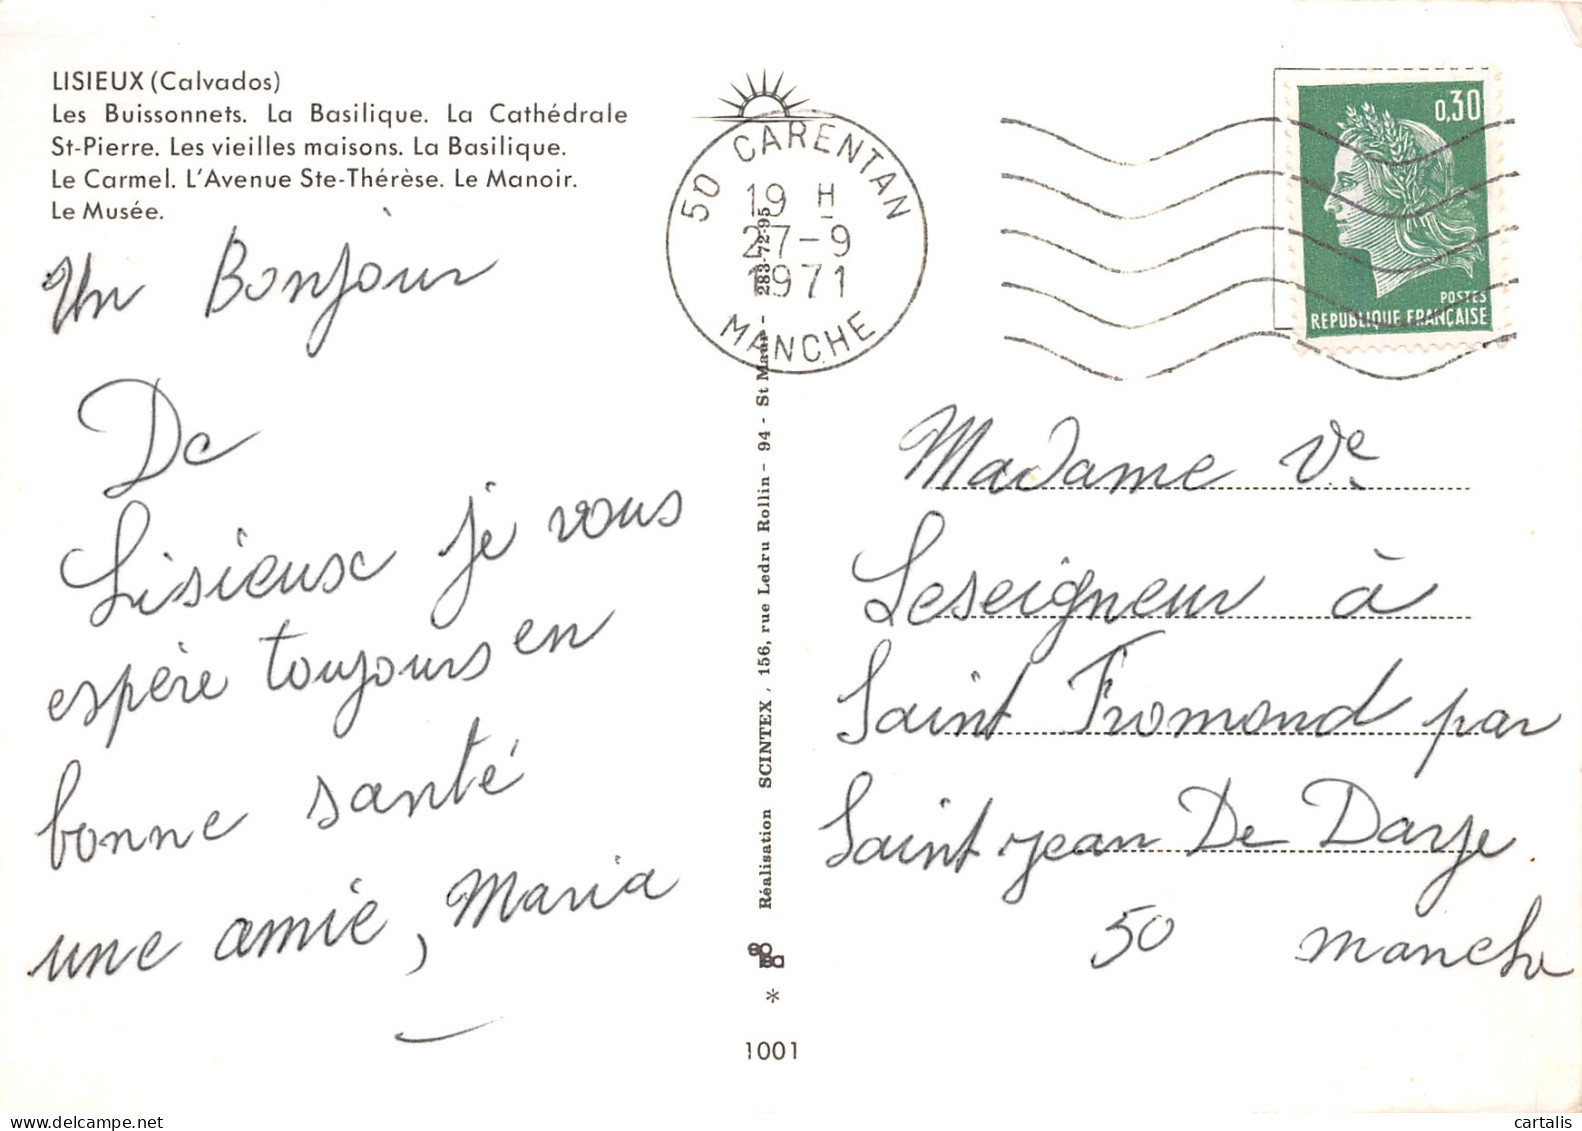 LISIEUX (Calvados)
Les Buissonnets. La Basilique. La Cathédrale
St-Pierre. Les vieilles maisons. La Basilique.
Le Carmel. L'Avenue Ste-Thérèse. Le Manoir.
Le Musée.
Un Bonjour
De
Lisieux je vous
espère toujours en
bonne santé
une amie, Maria
50 CARENTAN
19 H
27-9
1971
MANCHE
Réalisation SCINTEX, 156, rue Ledru Rollin - 94 - St Maur - 283-72-95
*
1001
0,30
POSTES
REPUBLIQUE FRANÇAISE
Madame Ve
Leseigneur à
Saint Fromond par
Saint jean De Daye
50 manche
cartalis